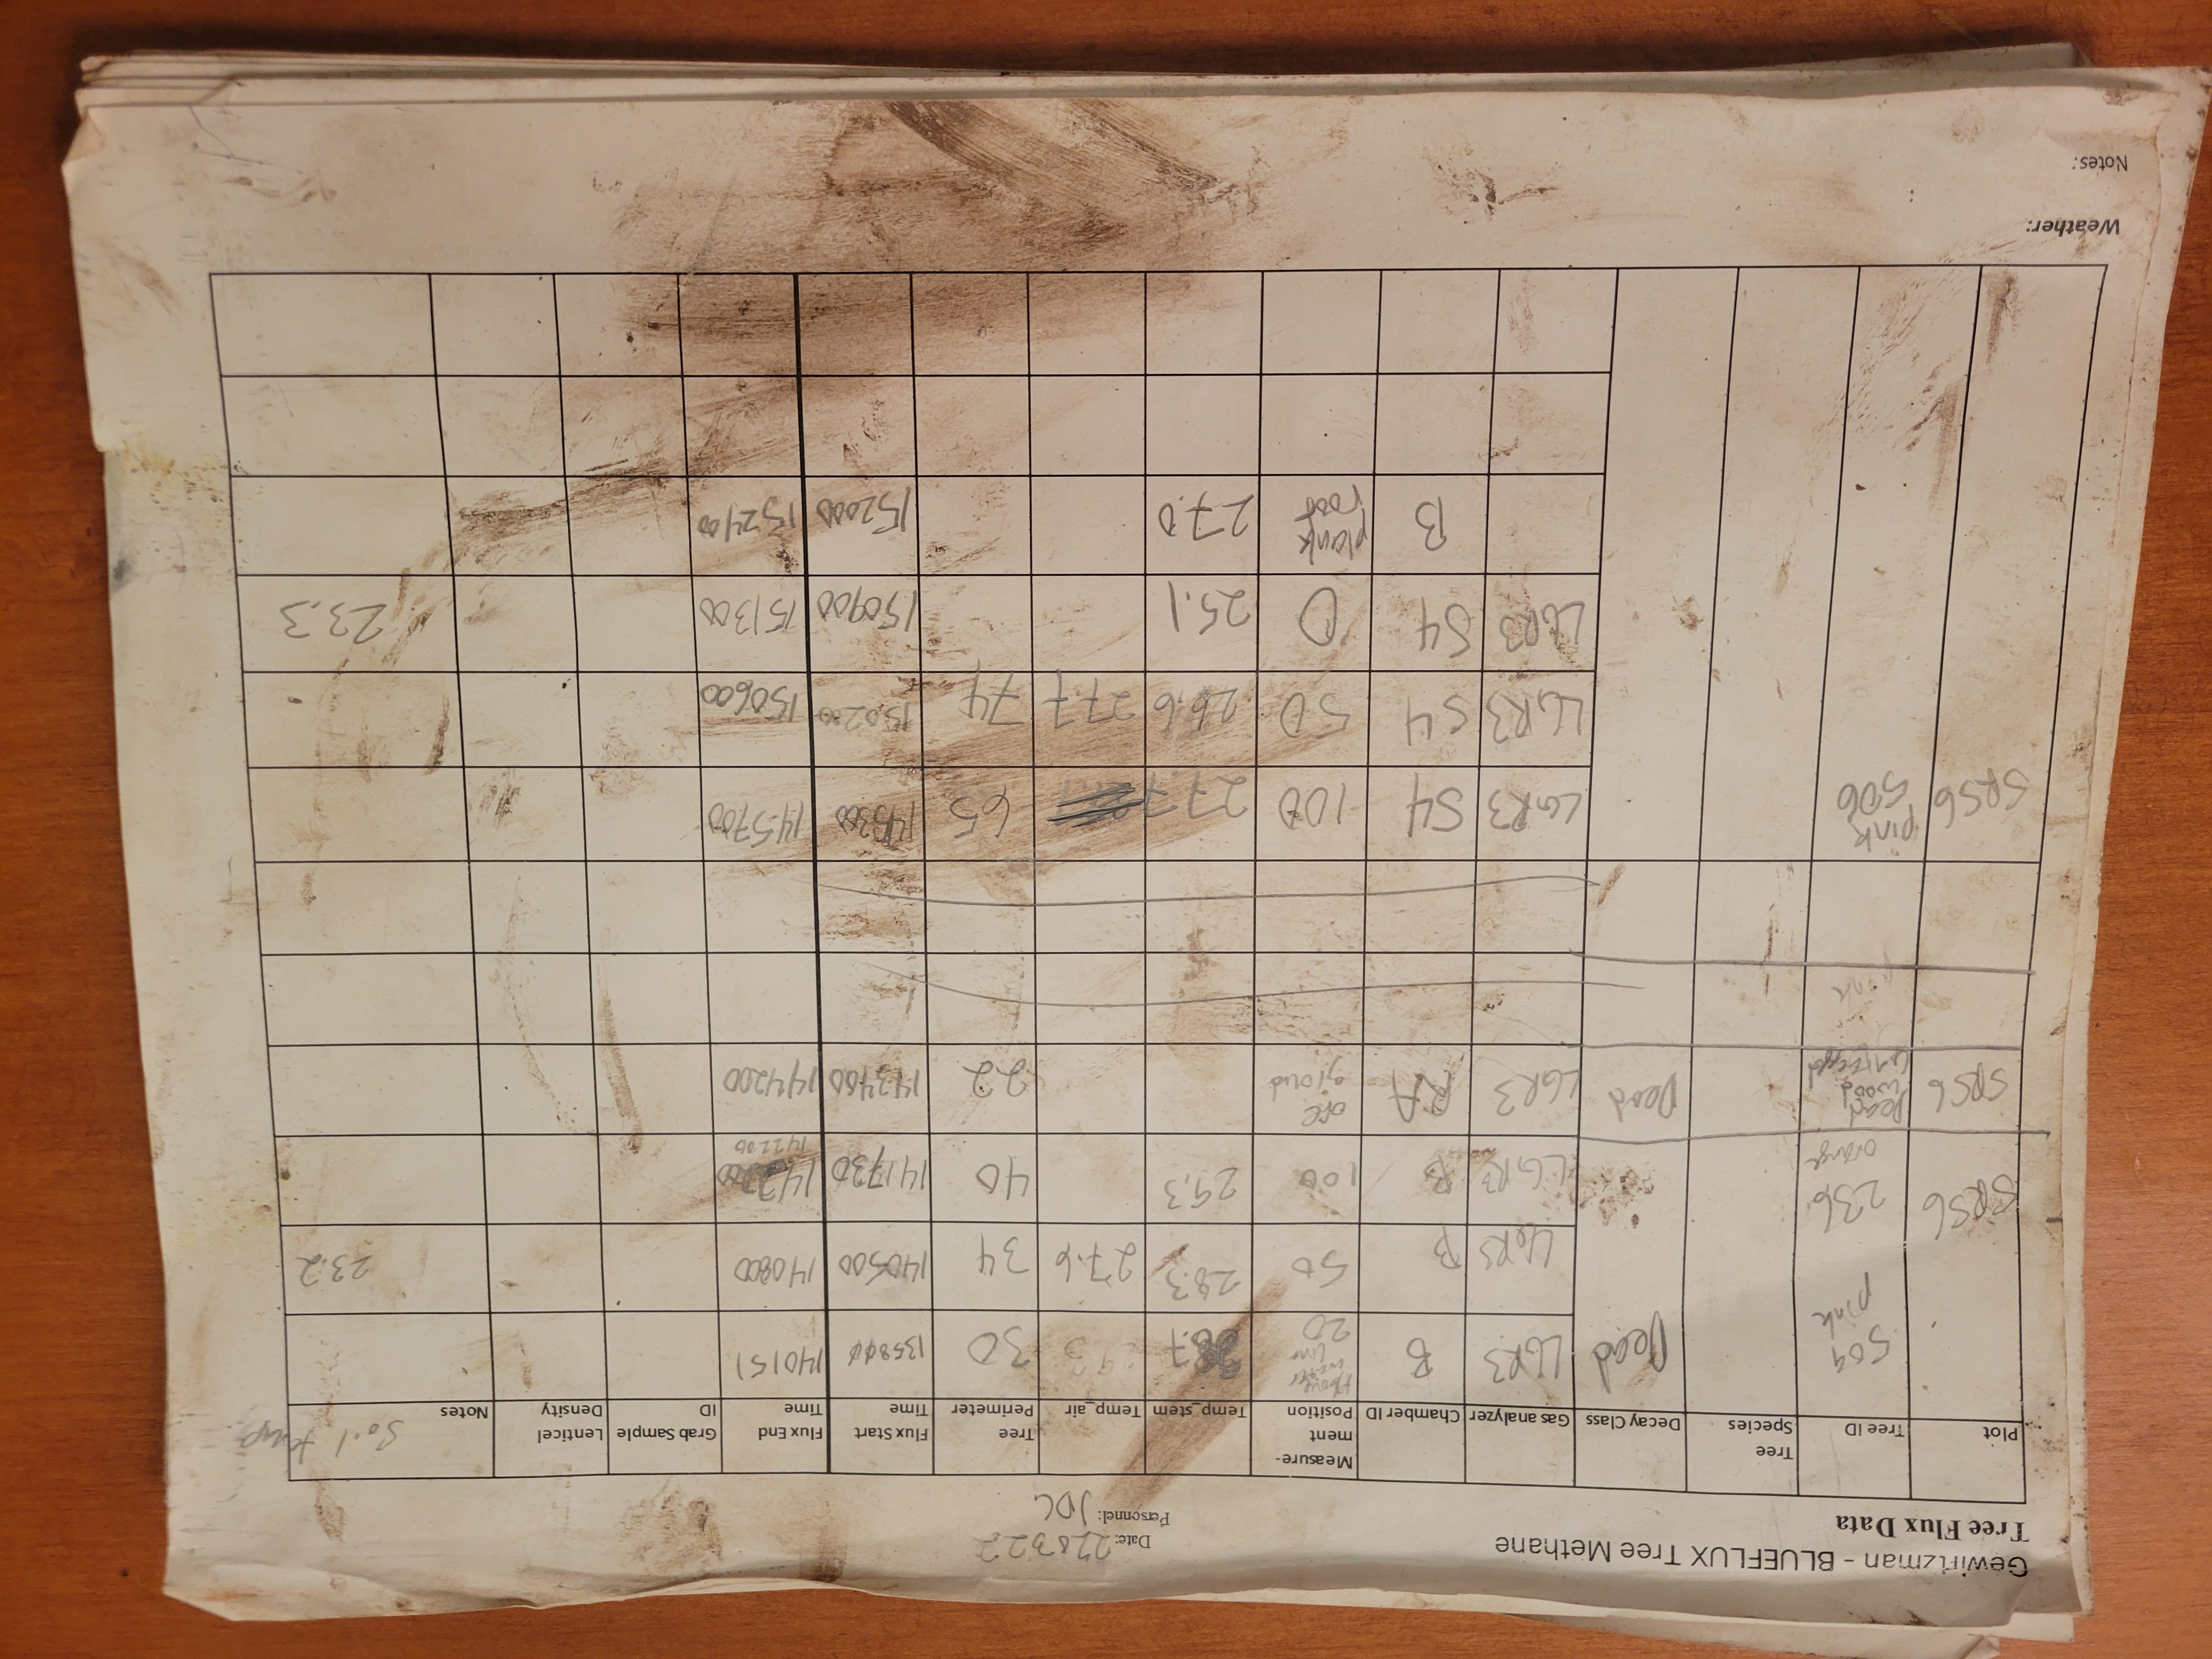 Gewirtzman - BLUEFLUX Tree Methane
Tree Flux Data
Date: 220322
Personnel: JDC
Plot Tree ID Tree Species Decay Class Gas analyzer Chamber ID Measure-ment Position Temp_stem Temp_air Tree Perimeter Flux Start Time Flux End Time Grab Sample ID Lenticel Density Notes Soil temp
509 pink Dead LGR3 B Above water line 20 29.3 30 140151
LGR3 B 50 28.3 27.6 34 140500 140800 23.2
SRS6 236 orange LGR3 B 100 29.3 40 141730 142206
SRS6 Dead wood untagged Dead LGR3 RA off ground 22 142400 144200
SRS6 pink 506 LGR3 S4 100 27.7 65 145700
LGR3 S4 50 26.6 27.7 74 150200 150600
LGR3 S4 0 25.1 150900 151300 23.3
B plank root 27.0 152000 152400
Weather:
Notes: